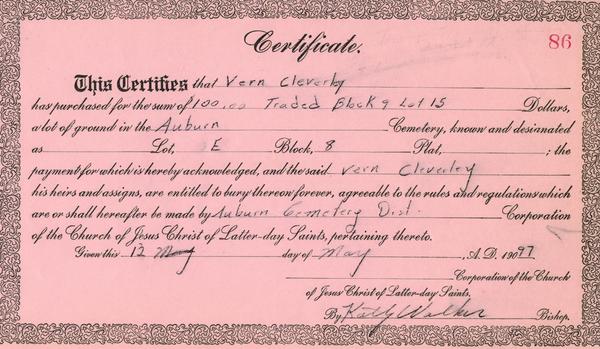 86
Certificate.
This Certifies that Vern Cleverly
has purchased for the sum of 100.00 Traded Block 9 Lot 15 Dollars,
a lot of ground in the Auburn Cemetery, known and desianated
as Lot, E Block, 8 Plat, ; the
payment for which is hereby acknowledged, and the said Vern Cleverley
his heirs and assigns, are entitled to bury thereon forever, agreeable to the rules and regulations which
are or shall hereafter be made by Auburn Cemetery Dist. Corporation
of the Church of Jesus Christ of Latter-day Saints, pertaining thereto.
Given this 12 May day of May A.D. 19097
Corporation of the Church
of Jesus Christ of Latter-day Saints,
By Kelly Walker Bishop.